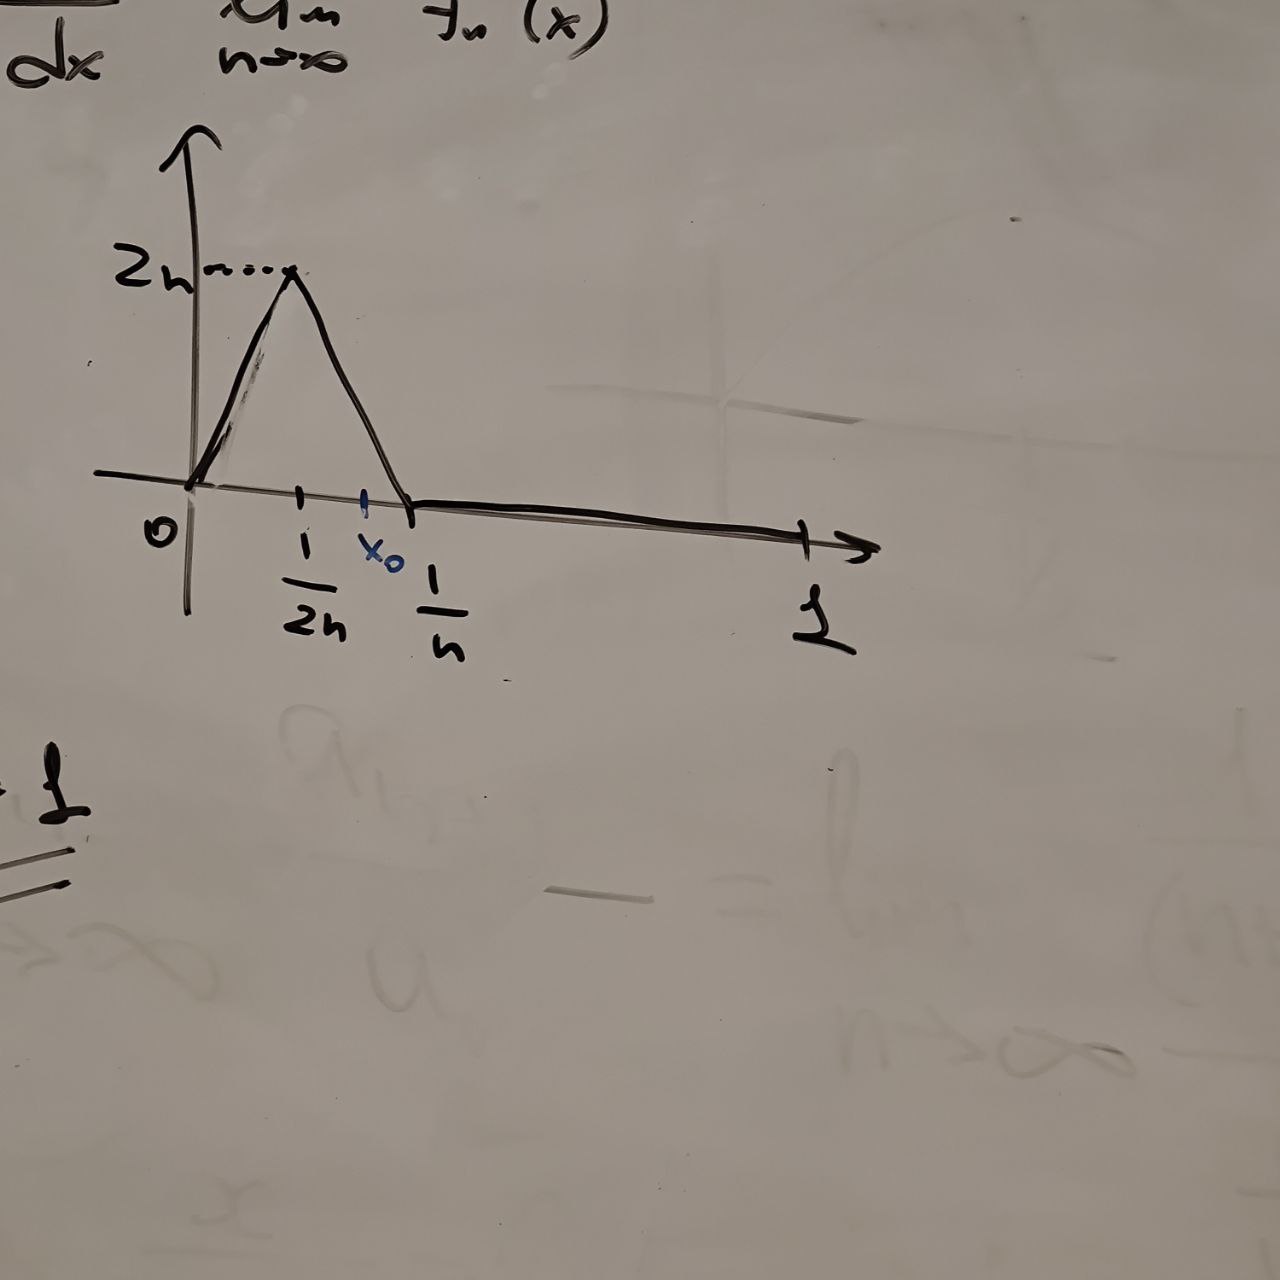 dx lim fn (x)
n→∞
2n
0
1/2n
x₀
1/n
1
1